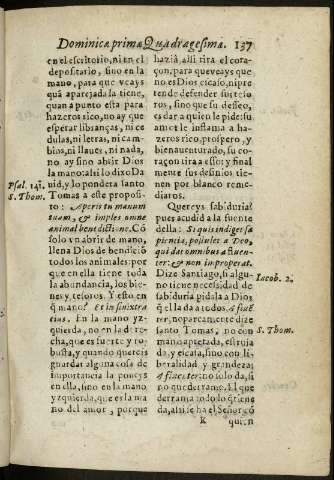 Dominica prima Quadragesima. 137
en el escritorio, ni en el
depositario, sino en la
mano, para que veays
quã aparejada la tiene,
quan a punto esta para
hazeros rico, no ay que
esperar libranças, ni ce
dulas, ni letras, ni cam-
bios, ni llaues, ni nada,
no ay sino abrir Dios
la mano: asi lo dixo Da
uid, y lo pondera santo
Tomas a este proposi-
to: Aperis tu manum
tuam, & imples omne
animal benedictione. Cõ
solo vn abrir de mano,
llena Dios de bendiciõ
todos los animales por
que en ella tiene toda
la abundancia, los bie-
nes, y tesoros. Y esto en
q̃ mano?
eius. En la mano yz-
quierda, no en la dere-
cha, que es fuerte y ro-
busta, y quando quereis
guardar alguna cosa de
importancia la poneys
en ella, sino en la mano
yzquierda, que es la ma
no del amor, porque
Psal. 141.
S. Thom.
hazià allí tira el cora-
çon, para que veays que
no es Dios escaso, ni pre
tende defender sus teso
ros, sino que su desseo,
es dar a quien le pide: su
amor le inflama a ha-
zeros rico, prospero, y
bienauenturado, su co-
raçon tira a esso: y final
mente sus desinios tie-
nen por blanco reme-
diaros.
Quereys sabiduria?
pues acudid a la fuente
della: Si quis indiget sa
pientia, postulet a Deo,
qui dat omnibus affluen-
ter: & non improperat.
Dize Santiago, si algu-
no tiene necessidad de
sabiduria pidala a Dios
q̃ el la da a todos. Affluẽ
ter, no parcamente dize
santo Tomas, no con
mano apretada, estruja
da, y escasa, sino con li-
beralidad y grandeza:
Affluenter: no solo da, si
no que derrama. El que
derrama todo lo q̃ tiene
da, asi se ha el Señor cõ
Iacob. 2.
S. Thom.
K quien